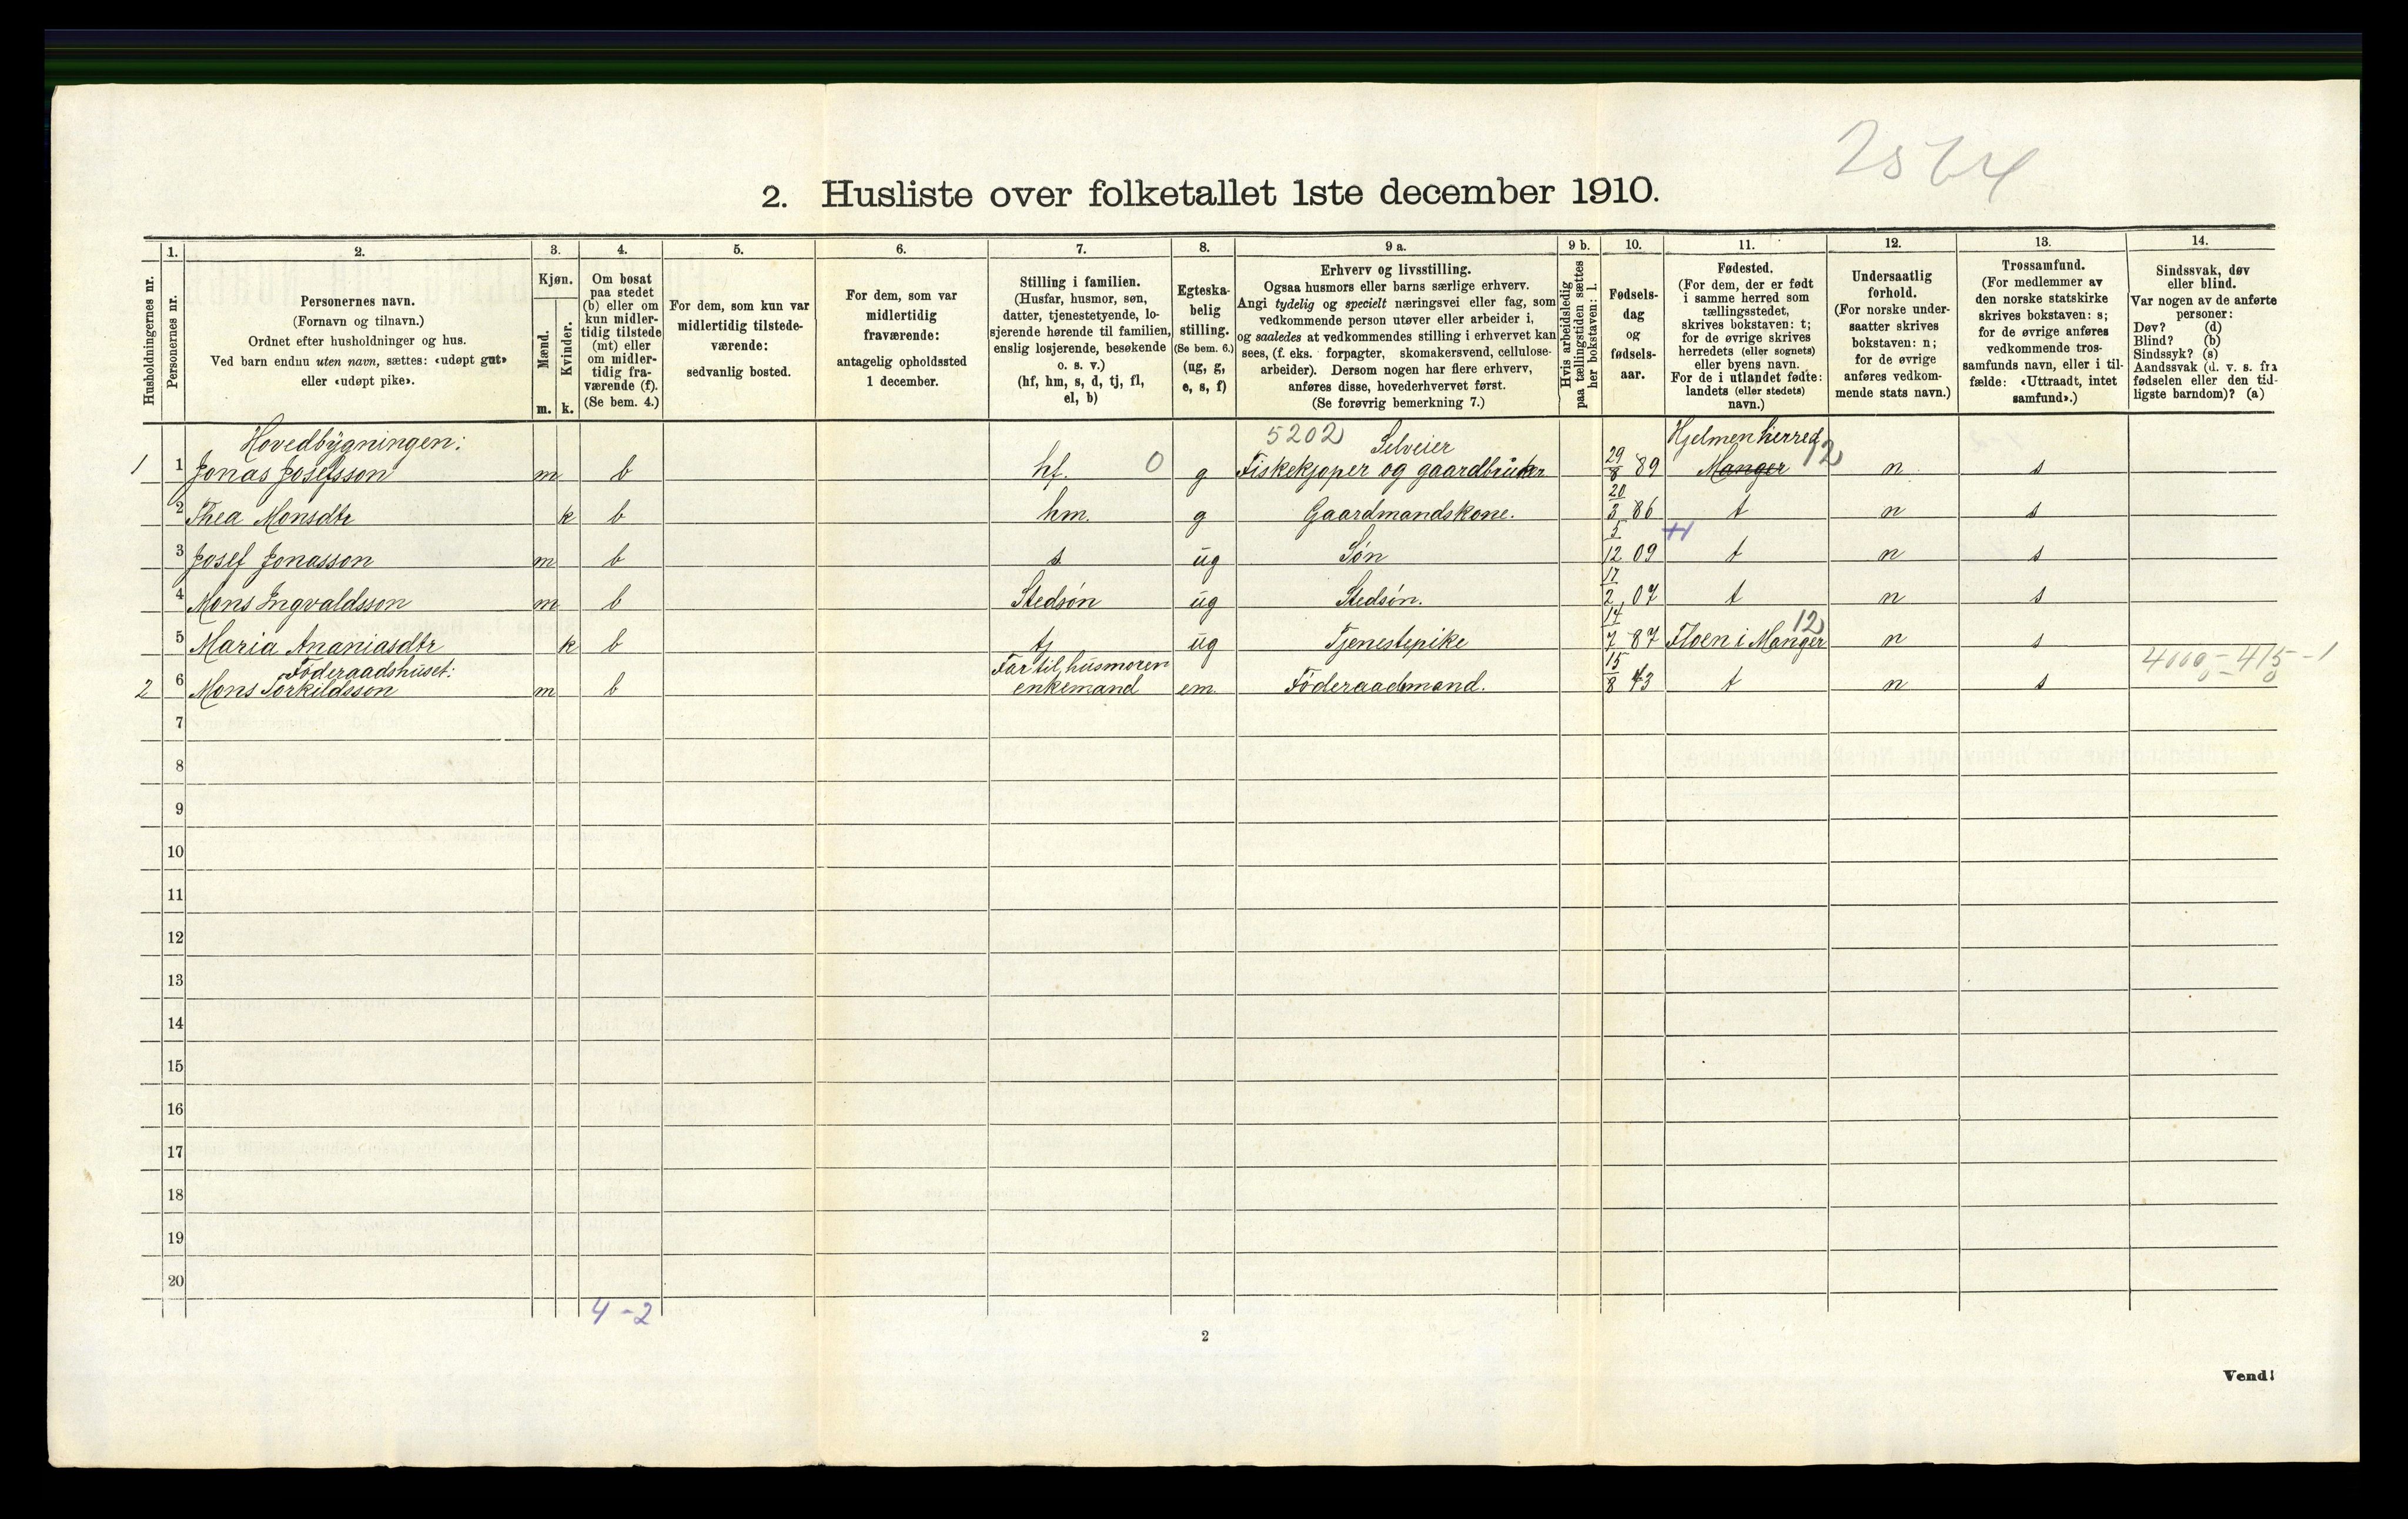 2564
2. Husliste over folketallet 1ste december 1910.
Husholdningernes nr.
1.
Personernes nr.
2.
Personernes navn.
(Fornavn og tilnavn.)
Ordnet efter husholdninger og hus.
Ved barn endnu uten navn, sættes: «udøpt gut»
eller «udøpt pike».
3.
Kjøn.
Mænd.
Kvinder.
m. k.
4.
Om bosat
paa stedet
(b) eller om
kun midler-
tidig tilstede
(mt) eller
om midler-
tidig fra-
værende (f).
(Se bem. 4.)
5.
For dem, som kun var
midlertidig tilstede-
værende:
sedvanlig bosted.
6.
For dem, som var
midlertidig
fraværende:
antagelig opholdssted
1 december.
7.
Stilling i familien.
(Husfar, husmor, søn,
datter, tjenestetyende, lo-
sjerende hørende til familien,
enslig losjerende, besøkende
o. s. v.)
(hf, hm, s, d, tj, fl,
el, b)
8.
Egteska-
belig
stilling.
(Se bem. 6.)
(ug, g,
e, s, f)
9 a.
Erhverv og livsstilling.
Ogsaa husmors eller barns særlige erhverv.
Angi tydelig og specielt næringsvei eller fag, som
vedkommende person utøver eller arbeider i,
og saaledes at vedkommendes stilling i erhvervet kan
sees, (f. eks. forpagter, skomakersvend, cellulose-
arbeider). Dersom nogen har flere erhverv,
anføres disse, hovederhvervet først.
(Se forøvrig bemerkning 7.)
9 b.
Hvis arbeidsledig
paa tællingstiden sættes
her bokstaven: l.
10.
Fødsels-
dag
og
fødsels-
aar.
11.
Fødested.
(For dem, der er født
i samme herred som
tællingsstedet,
skrives bokstaven: t;
for de øvrige skrives
herredets (eller sognets)
eller byens navn.
For de i utlandet fødte:
landets (eller stedets)
navn.)
12.
Undersaatlig
forhold.
(For norske under-
saatter skrives
bokstaven: n;
for de øvrige
anføres vedkom-
mende stats navn.)
13.
Trossamfund.
(For medlemmer av
den norske statskirke
skrives bokstaven: s;
for de øvrige anføres
vedkommende tros-
samfunds navn, eller i til-
fælde: «Uttraadt, intet
samfund».)
14.
Sindssvak, døv
eller blind.
Var nogen av de anførte
personer:
Døv? (d)
Blind? (b)
Sindssyk? (s)
Aandssvak (d. v. s. fra
fødselen eller den tid-
ligste barndom)? (a)
Hovedbygningen: 5202 Selveier Hjelmen herred
1 1 Jonas Josefsson m b hf. 0 g Fiskekjøper og gaardbruker 29/8 89 Manger 12 n s
2 Thea Monsdtr k b hm. g Gaardmandskone. 20/3 86 t n s
3 Josef Jonasson m b s. ug Søn 5/12 09 t n s
4 Mons Ingvaldsson m b Stedsøn ug Stedsøn. 17/2 07 t n s
5 Maria Ananiasdtr k b tj ug Tjenestepike 14/7 87 Floen i Manger 12 n s
Føderaadshuset: Far til husmoren 4000 - 415 - 1
2 6 Mons Torkildsson m b enkemand em. Føderaadmand. 15/8 43 t n s
7
8
9
10
11
12
13
14
15
16
17
18
19
20
4 - 2
2
Vend!